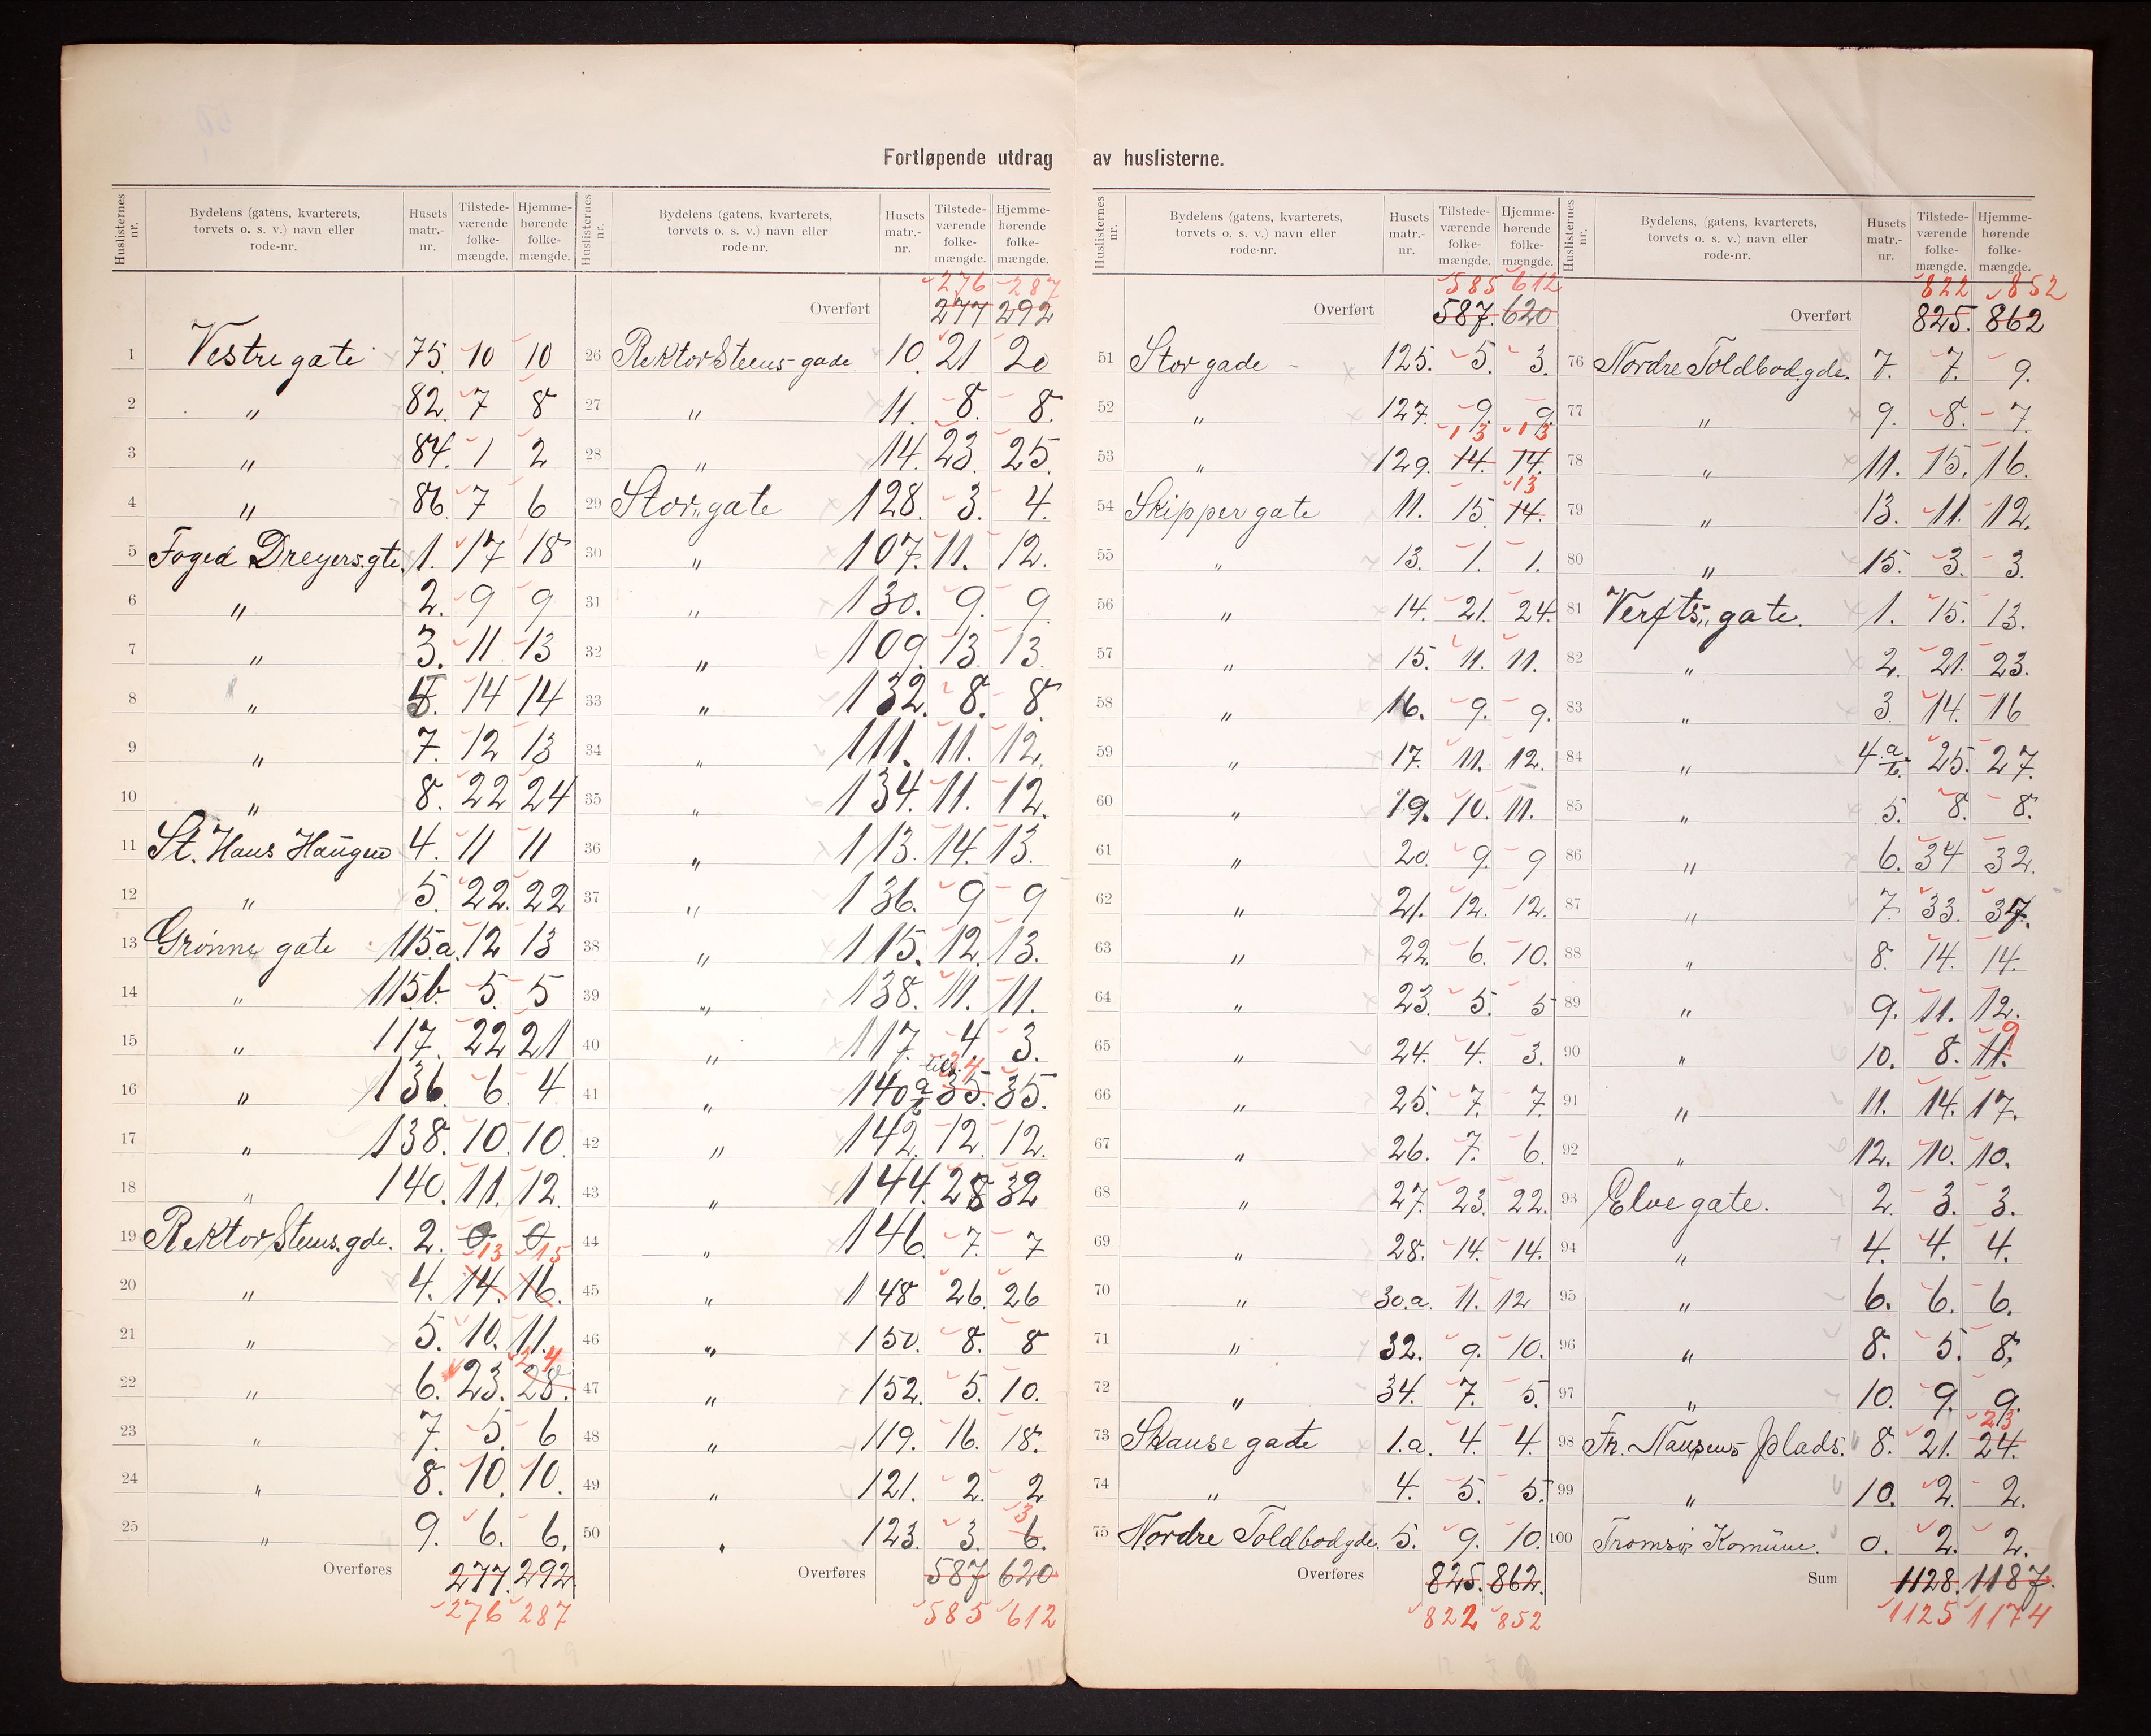 Fortløpende utdrag av huslisterne.
Huslisternes nr. Bydelens (gatens, kvarterets, torvets o. s. v.) navn eller rode-nr. Husets matr.-nr. Tilstedeværende folkemængde. Hjemmehørende folkemængde.
1 Vestre gate 75. 10 10
2 " 82. 7 8
3 " 84. 1 2
4 " 86. 7 6
5 Foged Dreyers.gte. 1. 17 18
6 " 2. 9 9
7 " 3. 11 13
8 " 5. 14 14
9 " 7. 12 13
10 " 8. 22 24
11 St. Hans Haugen 4. 11 11
12 " 5. 22. 22
13 Grønne gate 115.a. 12 13
14 " 115b. 5. 5
15 " 117. 22 21
16 " 136. 6. 4
17 " 138. 10. 10.
18 " 140. 11. 12.
19 Rektor Steens.gde. 2. 0 0
13 15
20 " 4. 14. 16.
21 " 5. 10. 11.
24
22 " 6. 23. 28.
23 " 7. 5. 6
24 " 8. 10. 10.
25 " 9. 6. 6.
Overføres 277. 292.
276 287
Huslisternes nr. Bydelens (gatens, kvarterets, torvets o. s. v.) navn eller rode-nr. Husets matr.-nr. Tilstedeværende folkemængde. Hjemmehørende folkemængde.
276 287
Overført 277 292
26 Rektor Steens-gade 10. 21 20
27 " 11. 8. 8.
28 " 14. 23. 25.
29 Stor„gate 128. 3. 4.
30 " 107. 11. 12.
31 " 130. 9. 9.
32 " 109. 13. 13.
33 " 132. 8. 8.
34 " 111. 11. 12.
35 " 134. 11. 12.
36 " 113. 14. 13.
37 " 136. 9 9
38 " 115. 12. 13.
39 " 138. 11. 11.
40 " 117. 4. 3.
34
41 " 140 a/b 35. 35.
42 " 142. 12. 12.
43 " 144. 28 32
44 " 146. 7. 7
45 " 148 26. 26
46 " 150. 8. 8
47 " 152. 5. 10.
48 " 119. 16. 18.
49 " 121. 2. 2
3
50 " 123. 3. 6.
Overføres 587 620
585 612
Huslisternes nr. Bydelens (gatens, kvarterets, torvets o. s. v.) navn eller rode-nr. Husets matr.-nr. Tilstedeværende folkemængde. Hjemmehørende folkemængde.
585 612
Overført 587. 620
51 Stor gade - 125. 5. 3.
52 " 127. 9. 9.
13 13
53 " 129. 14. 14.
13
54 Skipper gate 11. 15. 14.
55 " 13. 1. 1.
56 " 14. 21. 24.
57 " 15. 11. 11.
58 " 16. 9. 9.
59 " 17. 11. 12.
60 " 19. 10. 11.
61 " 20. 9. 9
62 " 21. 12. 12.
63 " 22. 6. 10.
64 " 23. 5. 5
65 " 24. 4. 3.
66 " 25. 7. 7.
67 " 26. 7. 6.
68 " 27. 23. 22.
69 " 28. 14. 14.
70 " 30.a. 11. 12
71 " 32. 9. 10.
72 " 34. 7. 5.
73 Skanse gade 1.a. 4. 4.
74 " 4. 5. 5.
75 Nordre Toldbodgde. 5. 9. 10.
Overføres 825. 862.
822 852
Huslisternes nr. Bydelens, (gatens, kvarterets, torvets o. s. v.) navn eller rode-nr. Husets matr.-nr. Tilstedeværende folkemængde. Hjemmehørende folkemængde.
822 852
Overført 825. 862
76 Nordre Toldbod.gde. 7. 7. 9.
77 " 9. 8. 7.
78 " 11. 15. 16.
79 " 13. 11. 12.
80 " 15. 3. 3.
81 Verfts„gate. 1. 15. 13.
82 " 2. 21. 23.
83 " 3. 14. 16
84 " 4 a/b. 25. 27.
85 " 5. 8. 8.
86 " 6. 34 32.
87 " 7. 33. 37.
88 " 8. 14. 14.
89 " 9. 11. 12.
9
90 " 10. 8. 11.
91 " 11. 14. 17.
92 " 12. 10. 10.
93 Elve gate. 2. 3. 3.
94 " 4. 4. 4.
95 " 6. 6. 6.
96 " 8. 5. 8.
97 " 10. 9. 9.
23
98 Fr. Nansens plads. 8. 21. 24.
99 " 10. 2. 2.
100 Tromsø Komune. 0. 2. 2.
Sum 1128. 1187.
1125 1174